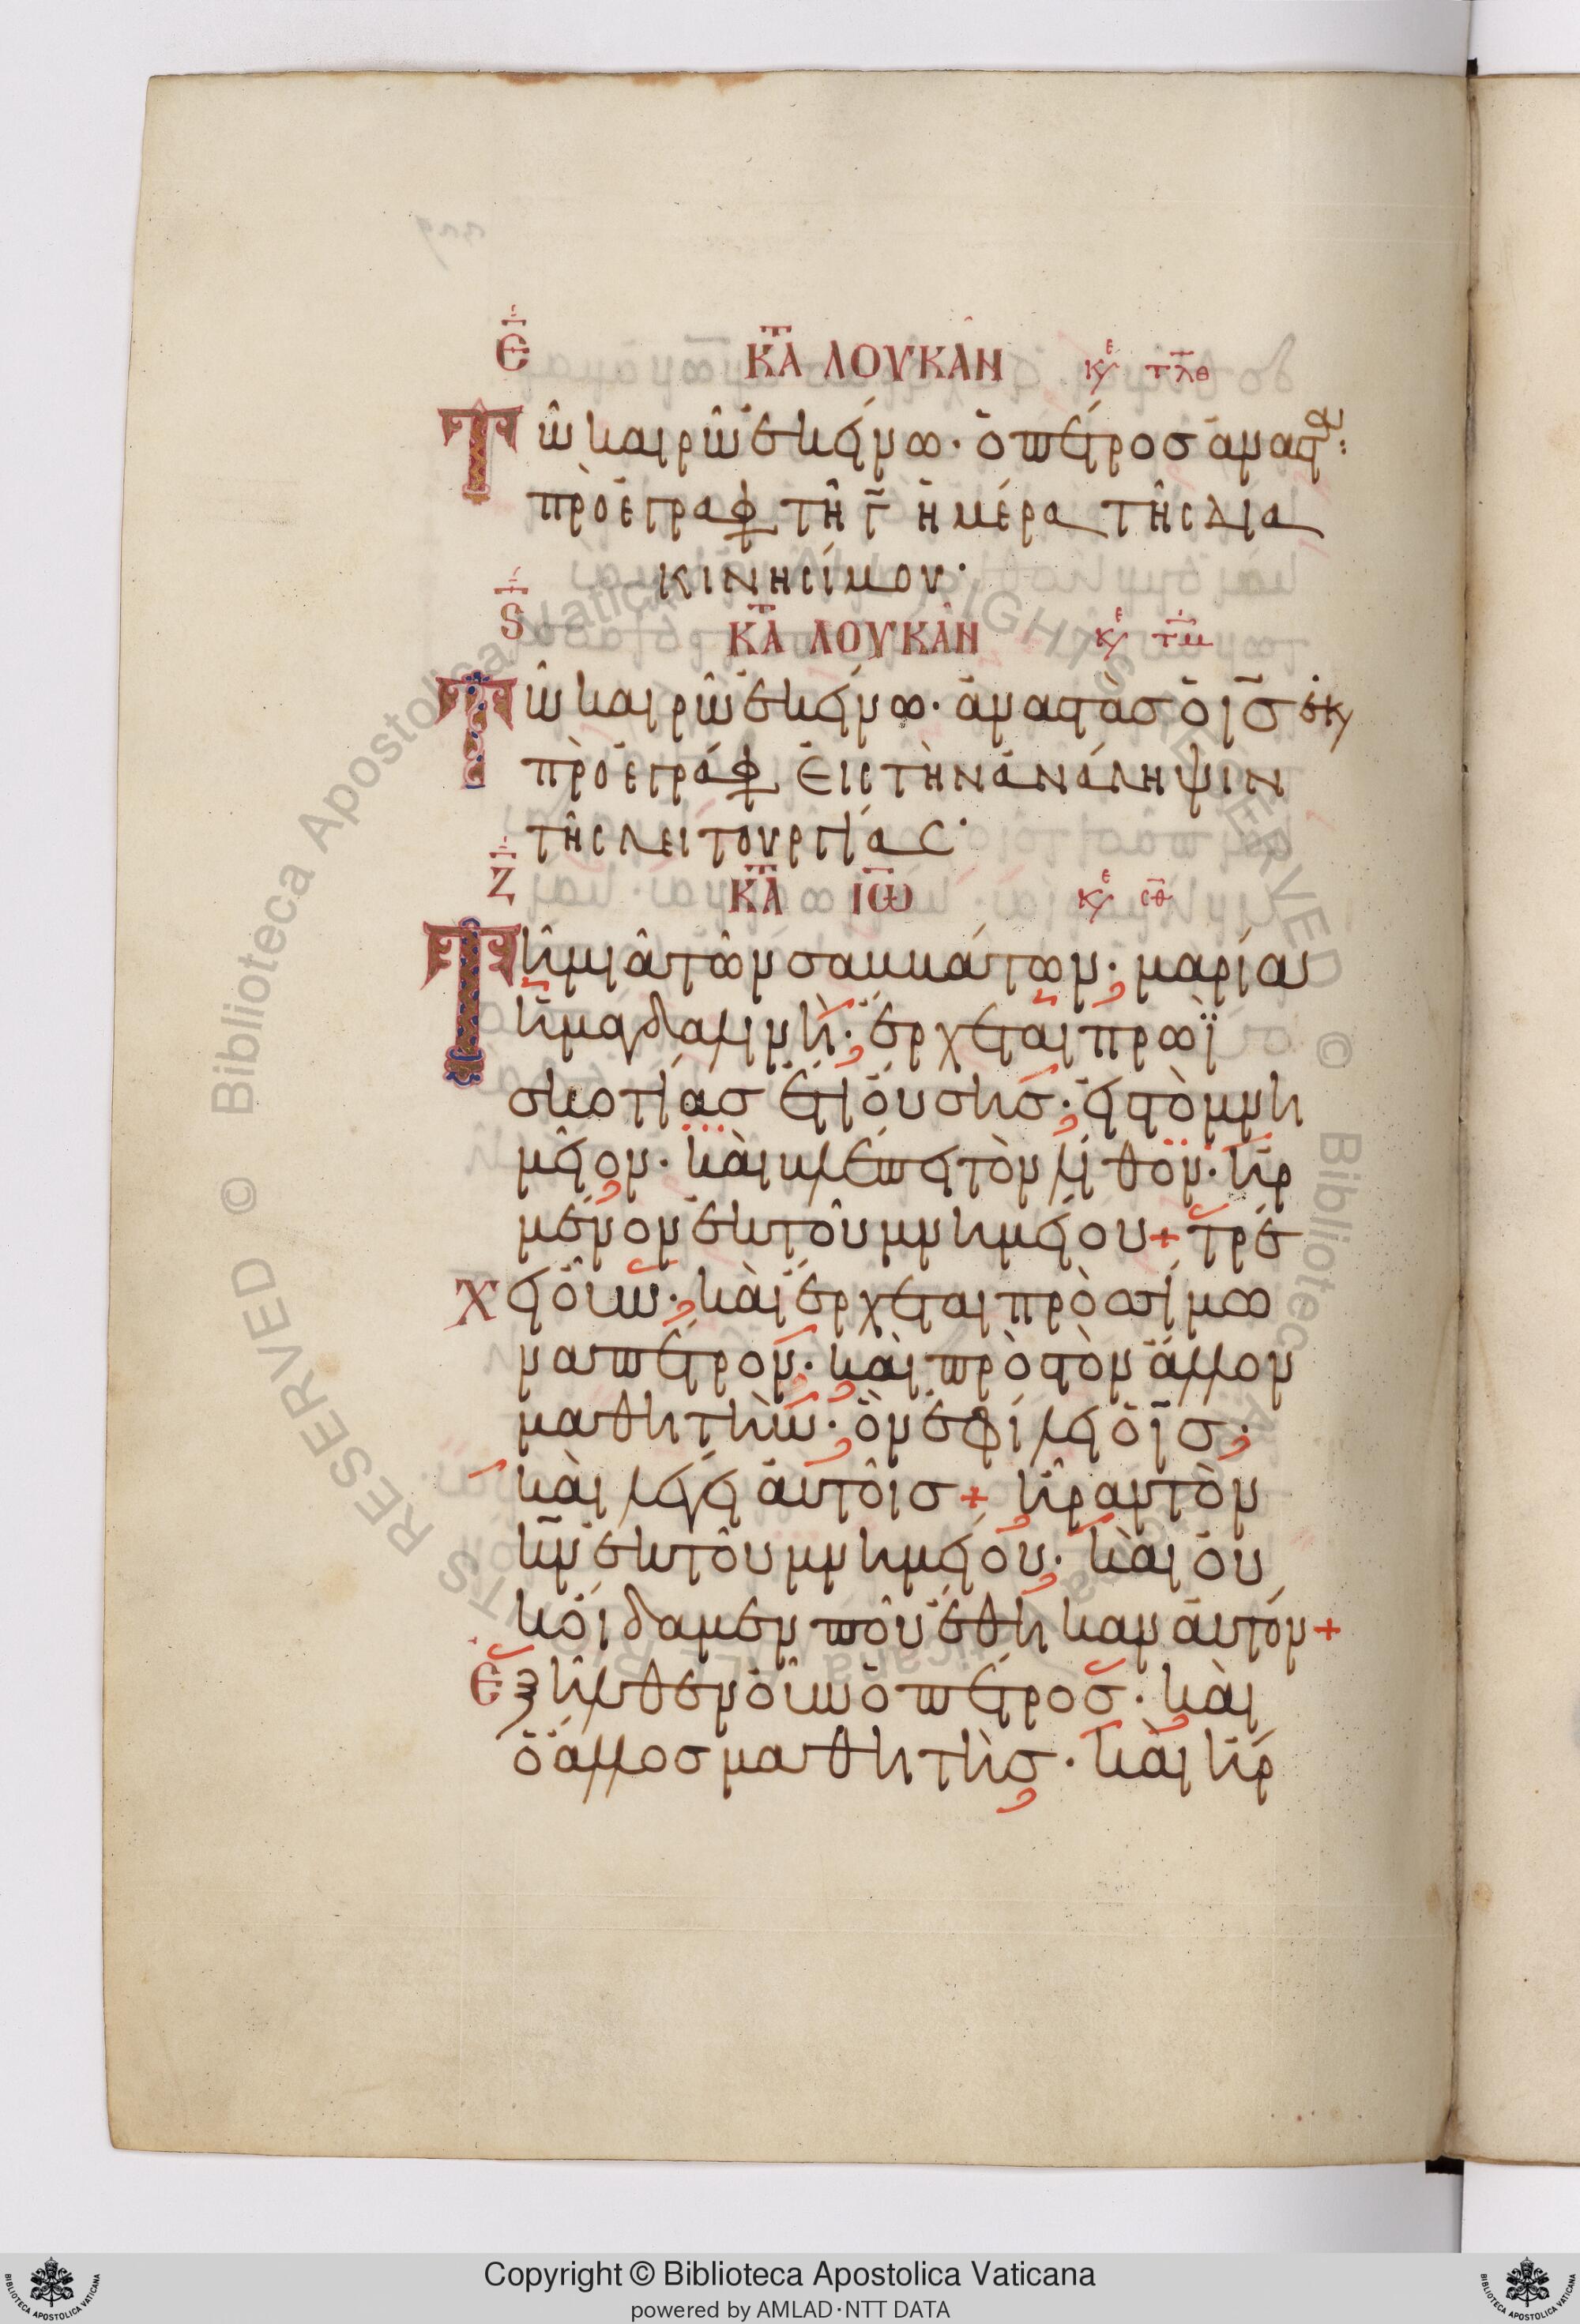 Ε̄ ΚΑΤ ΛΟΥΚΑΝ κε τλθ
Τῶ καιρῶ ἐκείνω· ὁ πέτρος ἀναστ:
πρὸεγράφ τῆ γ̄ ἡμέρα τῆς δια
κινησίμου·
ς̄ ΚΑΤ ΛΟΥΚΑΝ κε τμ
Τῶ καιρῶ ἐκείνω· ἀναστὰσ ὁ ισ̄ ἐκ
πρὸεγράφ εἰς τὴν ἀνάληψιν
τῆς λειτουργίας·
Ζ̄ ΚΑΤ ΙΩ κε σθ
Τῆ μιᾶ τῶν σαββάτων· μαρία
ἡ μαγδαληνὴ· ἔρχεται πρωῒ
σκοτίασ ἔτι οὔσησ· εἰς τὸ μνη
μεῖον· καὶ βλέπει τὸν λίθον· ἠρ
μένον ἐκ τοῦ μνημείου + τρέ
χει οὖν· καὶ ἔρχεται πρὸσ σίμω
να πέτρον· καὶ πρὸσ τὸν ἄλλον
μαθητὴν· ὃν ἐφίλει ὁ ισ̄·
καὶ λέγει αὐτοῖσ + ἦραν τὸν
κν̄ ἐκ τοῦ μνημείου· καὶ οὐ
κ οἴδαμεν ποῦ ἔθηκαν αὐτόν +
Ἐξῆλθεν οὖν ὁ πέτροσ· καὶ
ὁ ἄλλοσ μαθητὴσ· καὶ ἤρ
Copyright © Biblioteca Apostolica Vaticana
powered by AMLAD·NTT DATA